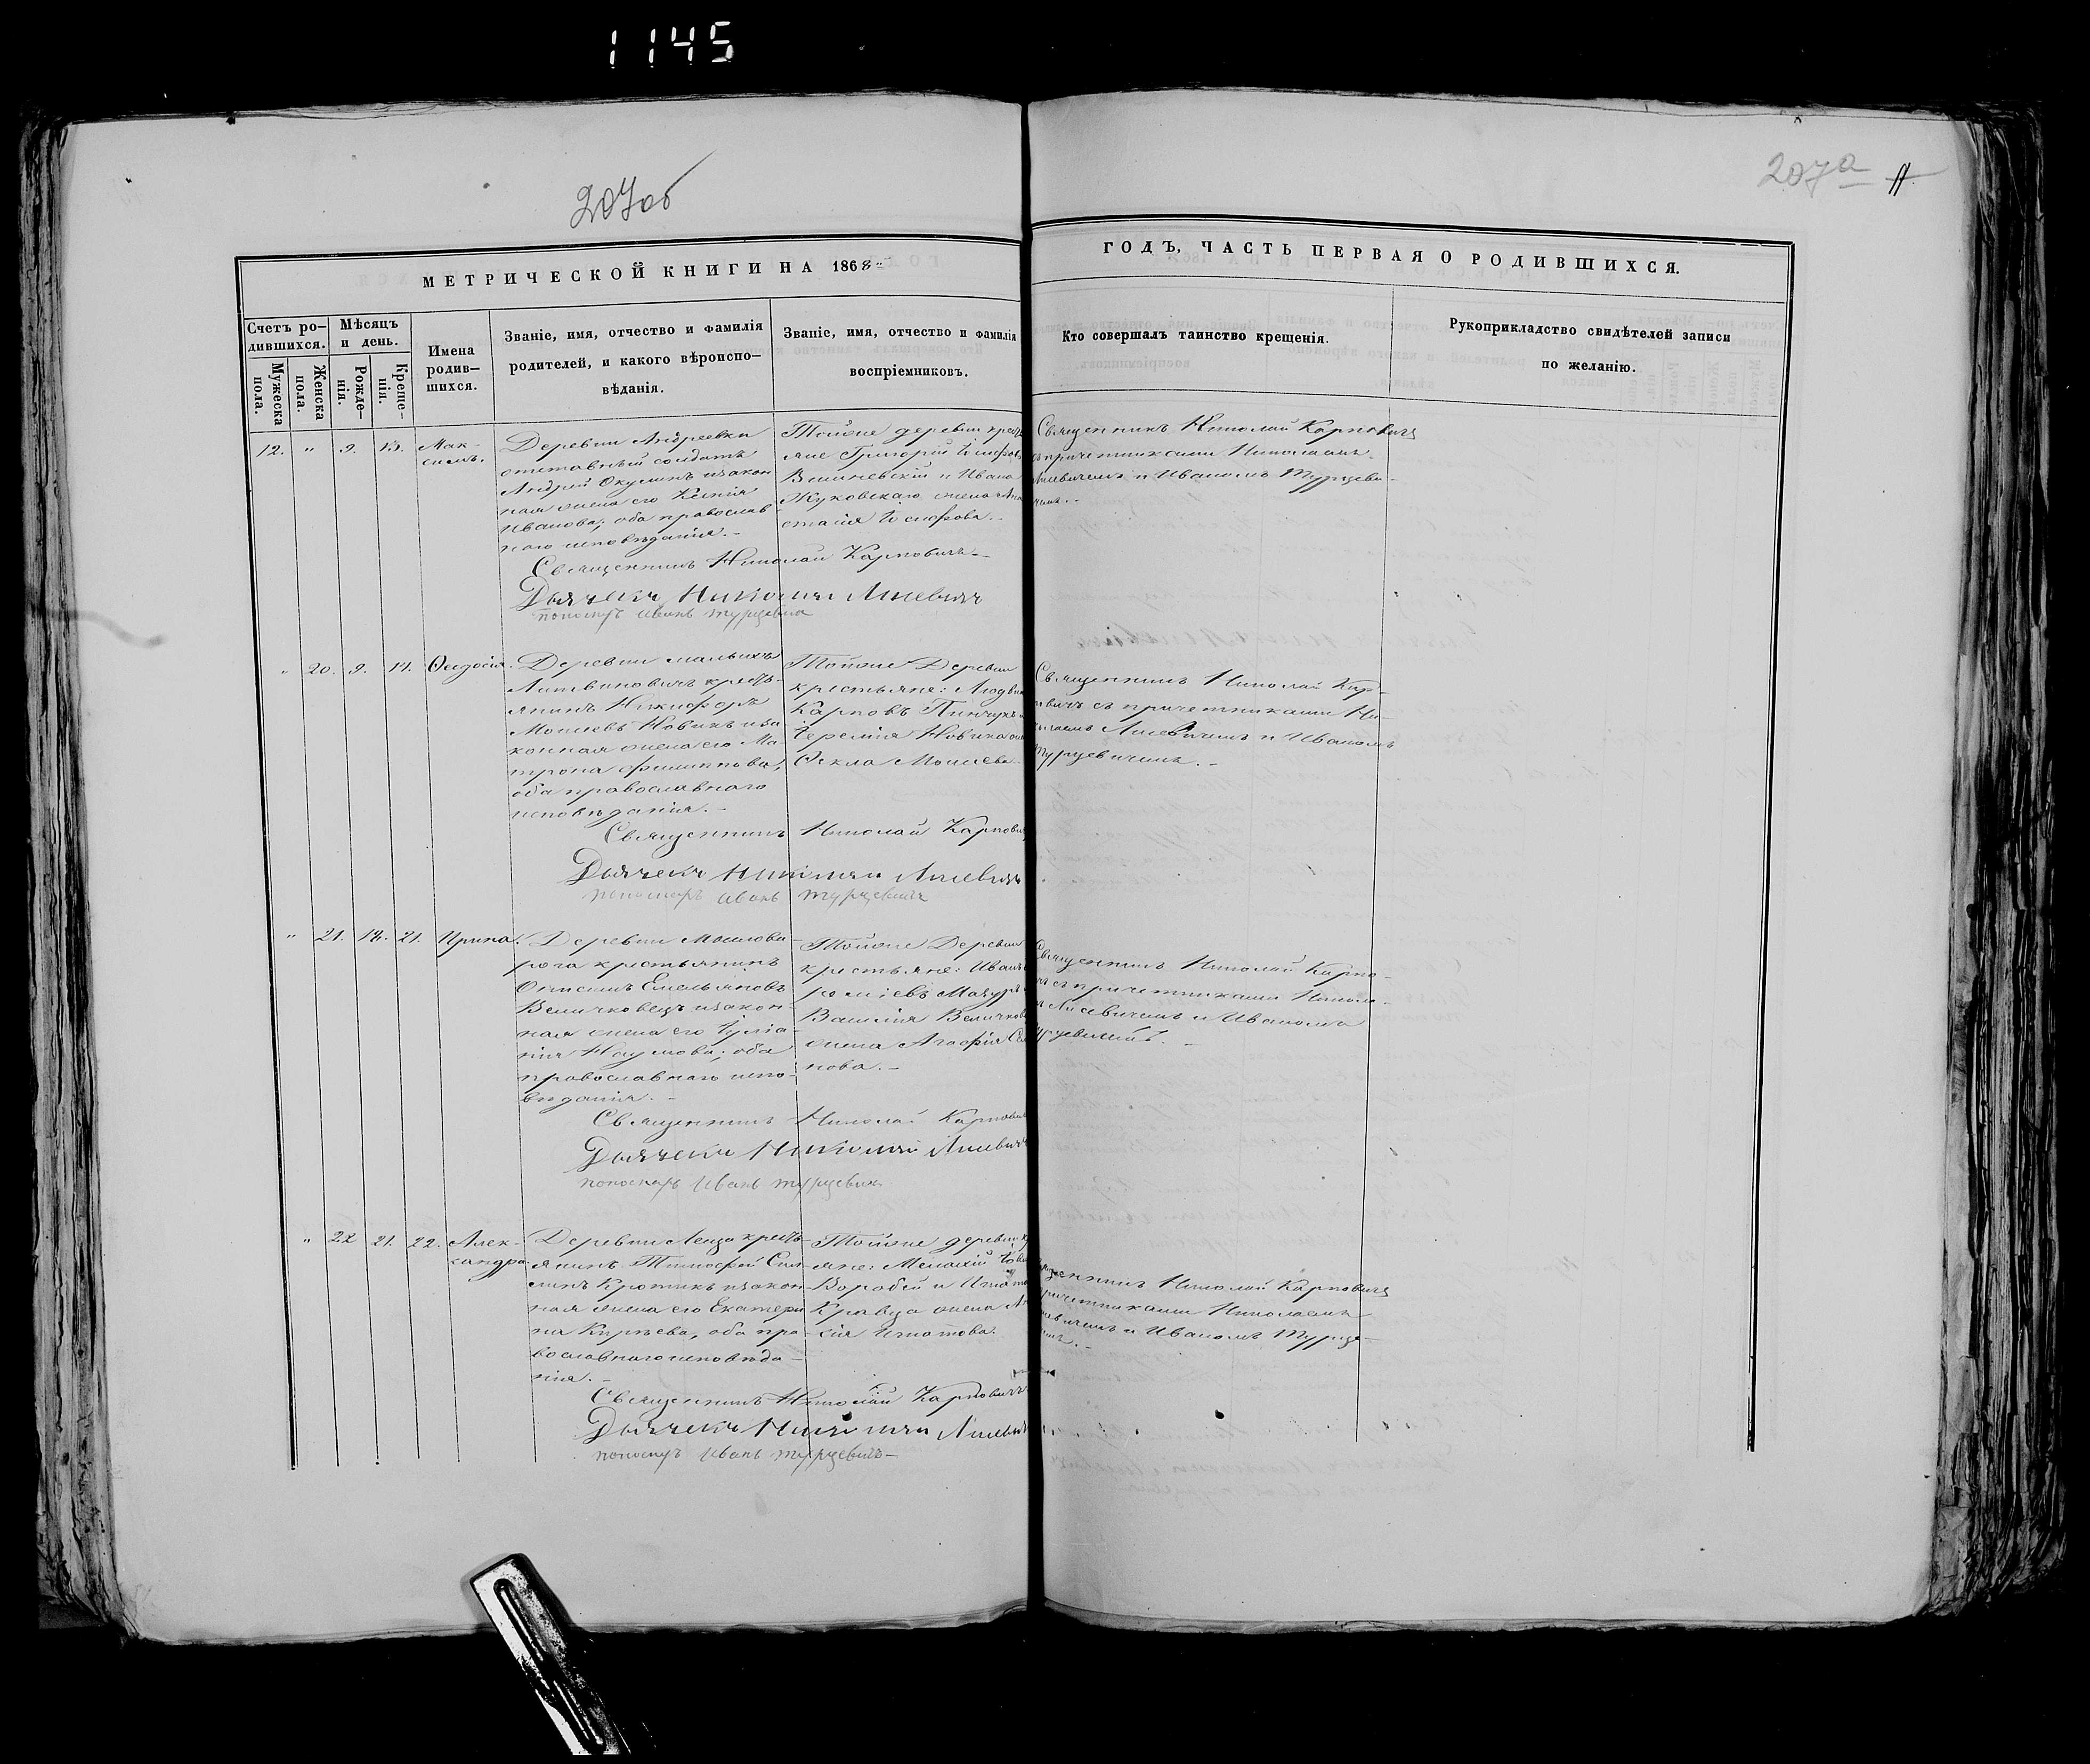 1145
207об
207а
МЕТРИЧЕСКОЙ КНИГИ НА 1868
ГОДЪ, ЧАСТЬ ПЕРВАЯ О РОДИВШИХСЯ.
Счетъ ро-
дившихся.
Мужеска пола.
Женска пола.
Мѣсяцъ
и день.
Рожде-
нія.
Креще-
нія.
Имена
родив-
шихся.
Званіе, имя, отчество и фамилія
родителей, и какого вѣроиспо-
вѣданія.
Званіе, имя, отчество и фамилія
воспріемниковъ.
Кто совершалъ таинство крещенія.
Рукоприкладство свидѣтелей записи
по желанію.
12. " 9. 13. Мак-
симъ.
Деревни Андреевки
отставный солдатъ
Андрей Окулинъ и закон
ная жена его Ксенія
Иванова; оба православ
наго исповѣданія.-
Тойже деревни
яне Григорій
Вишневскій и Ивана
Жуковскаго жена
Іосифова.-
Священникъ Николай Карповичъ
съ причетниками Николаемъ
и Иваномъ Турцеви-
чемъ.-
Священникъ Николай Карповичъ.-
Дьячекъ Николай Лисевичъ
пономарь Иванъ Турцевичъ
" 20. 9. 14. Ѳеодосія.
Деревни малыхъ
Литвиновичъ кресть-
янинъ Никифоръ
Моисеевъ Новикъ и за
конная жена его Ма
трона Филиппова,
оба православнаго
исповѣданія.-
Тойже Деревни
крестьяне:
Карповъ Пинчукъ
Іеремія Новика
Ѳекла Моисеева
Священникъ Николай Кар-
повичъ съ причетниками Ни-
колаемъ Лисевичемъ и Иваномъ
Турцевичемъ.-
Священникъ Николай Карпович
Дьячекъ Николай Лисевичъ
пономарь Иванъ Турцевичъ
" 21. 18. 21. Ирина.
Деревни
рога крестьянинъ
Онисимъ Емельяновъ
Величковецъ и закон-
ная жена его Іулiа-
нія Наумова; оба
православнаго испо-
вѣданія.-
Тойже Деревни
крестьяне: Иванъ
Мазуръ
Василія Величков
жена Агафія Се
нова.-
Священникъ Николай Карпо-
съ причетниками Никола-
Лисевичемъ и Иваномъ
Турцевичемъ.-
Священникъ Николай Карпович
Дьячекъ Николай Лисевичъ
пономарь Иванъ Турцевичъ
" 22 21. 22. Алек-
сандра
Деревни Ленцо кресть-
янинъ Тимофей Сил-
инъ Кротикъ и закон-
ная жена его Екатери
на Киреева, оба пра-
вославнаго исповѣда-
нія.-
Тойже деревни
яне:
Воробей и Игнат
Кравца жена
Игнатова.
Николай Карповичъ
причетниками Николаемъ
и Иваномъ Турце-
Священникъ Николай Карповичъ
Дьячекъ Николай Лисевичъ
пономарь Иванъ Турцевичъ-